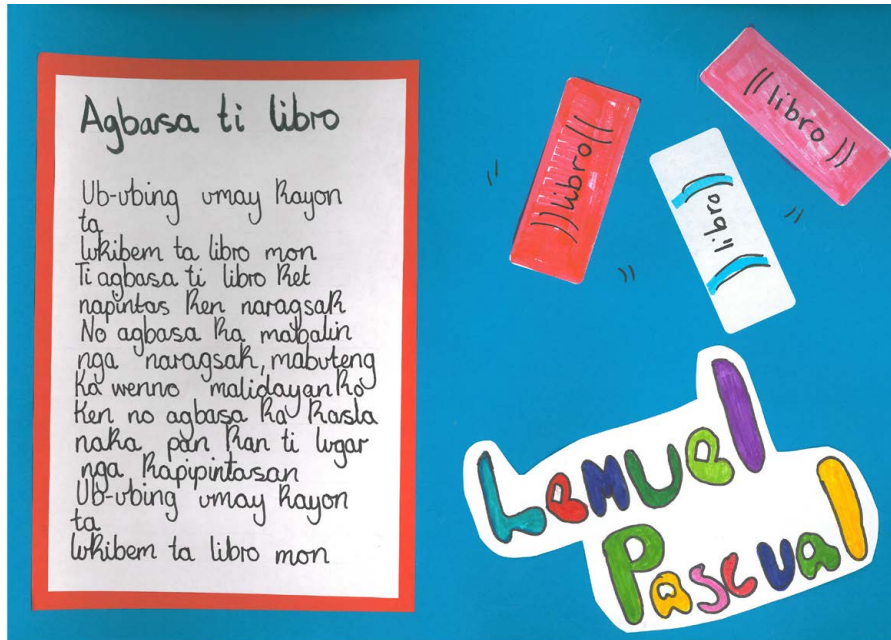 Agbasa ti libro
Ub-ubing umay kayon
ta
lukibem ta libro mon
Ti agbasa ti libro ket
napintas ken naragsak
No agbasa ka mabalin
nga naragsak, mabuteng
ka wenno malidayan ka
ken no agbasa ka kasla
naka pan kan ti lugar
nga kapipintasan
Ub-ubing umay kayon
ta
lukibem ta libro mon
((libro((
((libro))
(libro)
Lemuel
Pascual